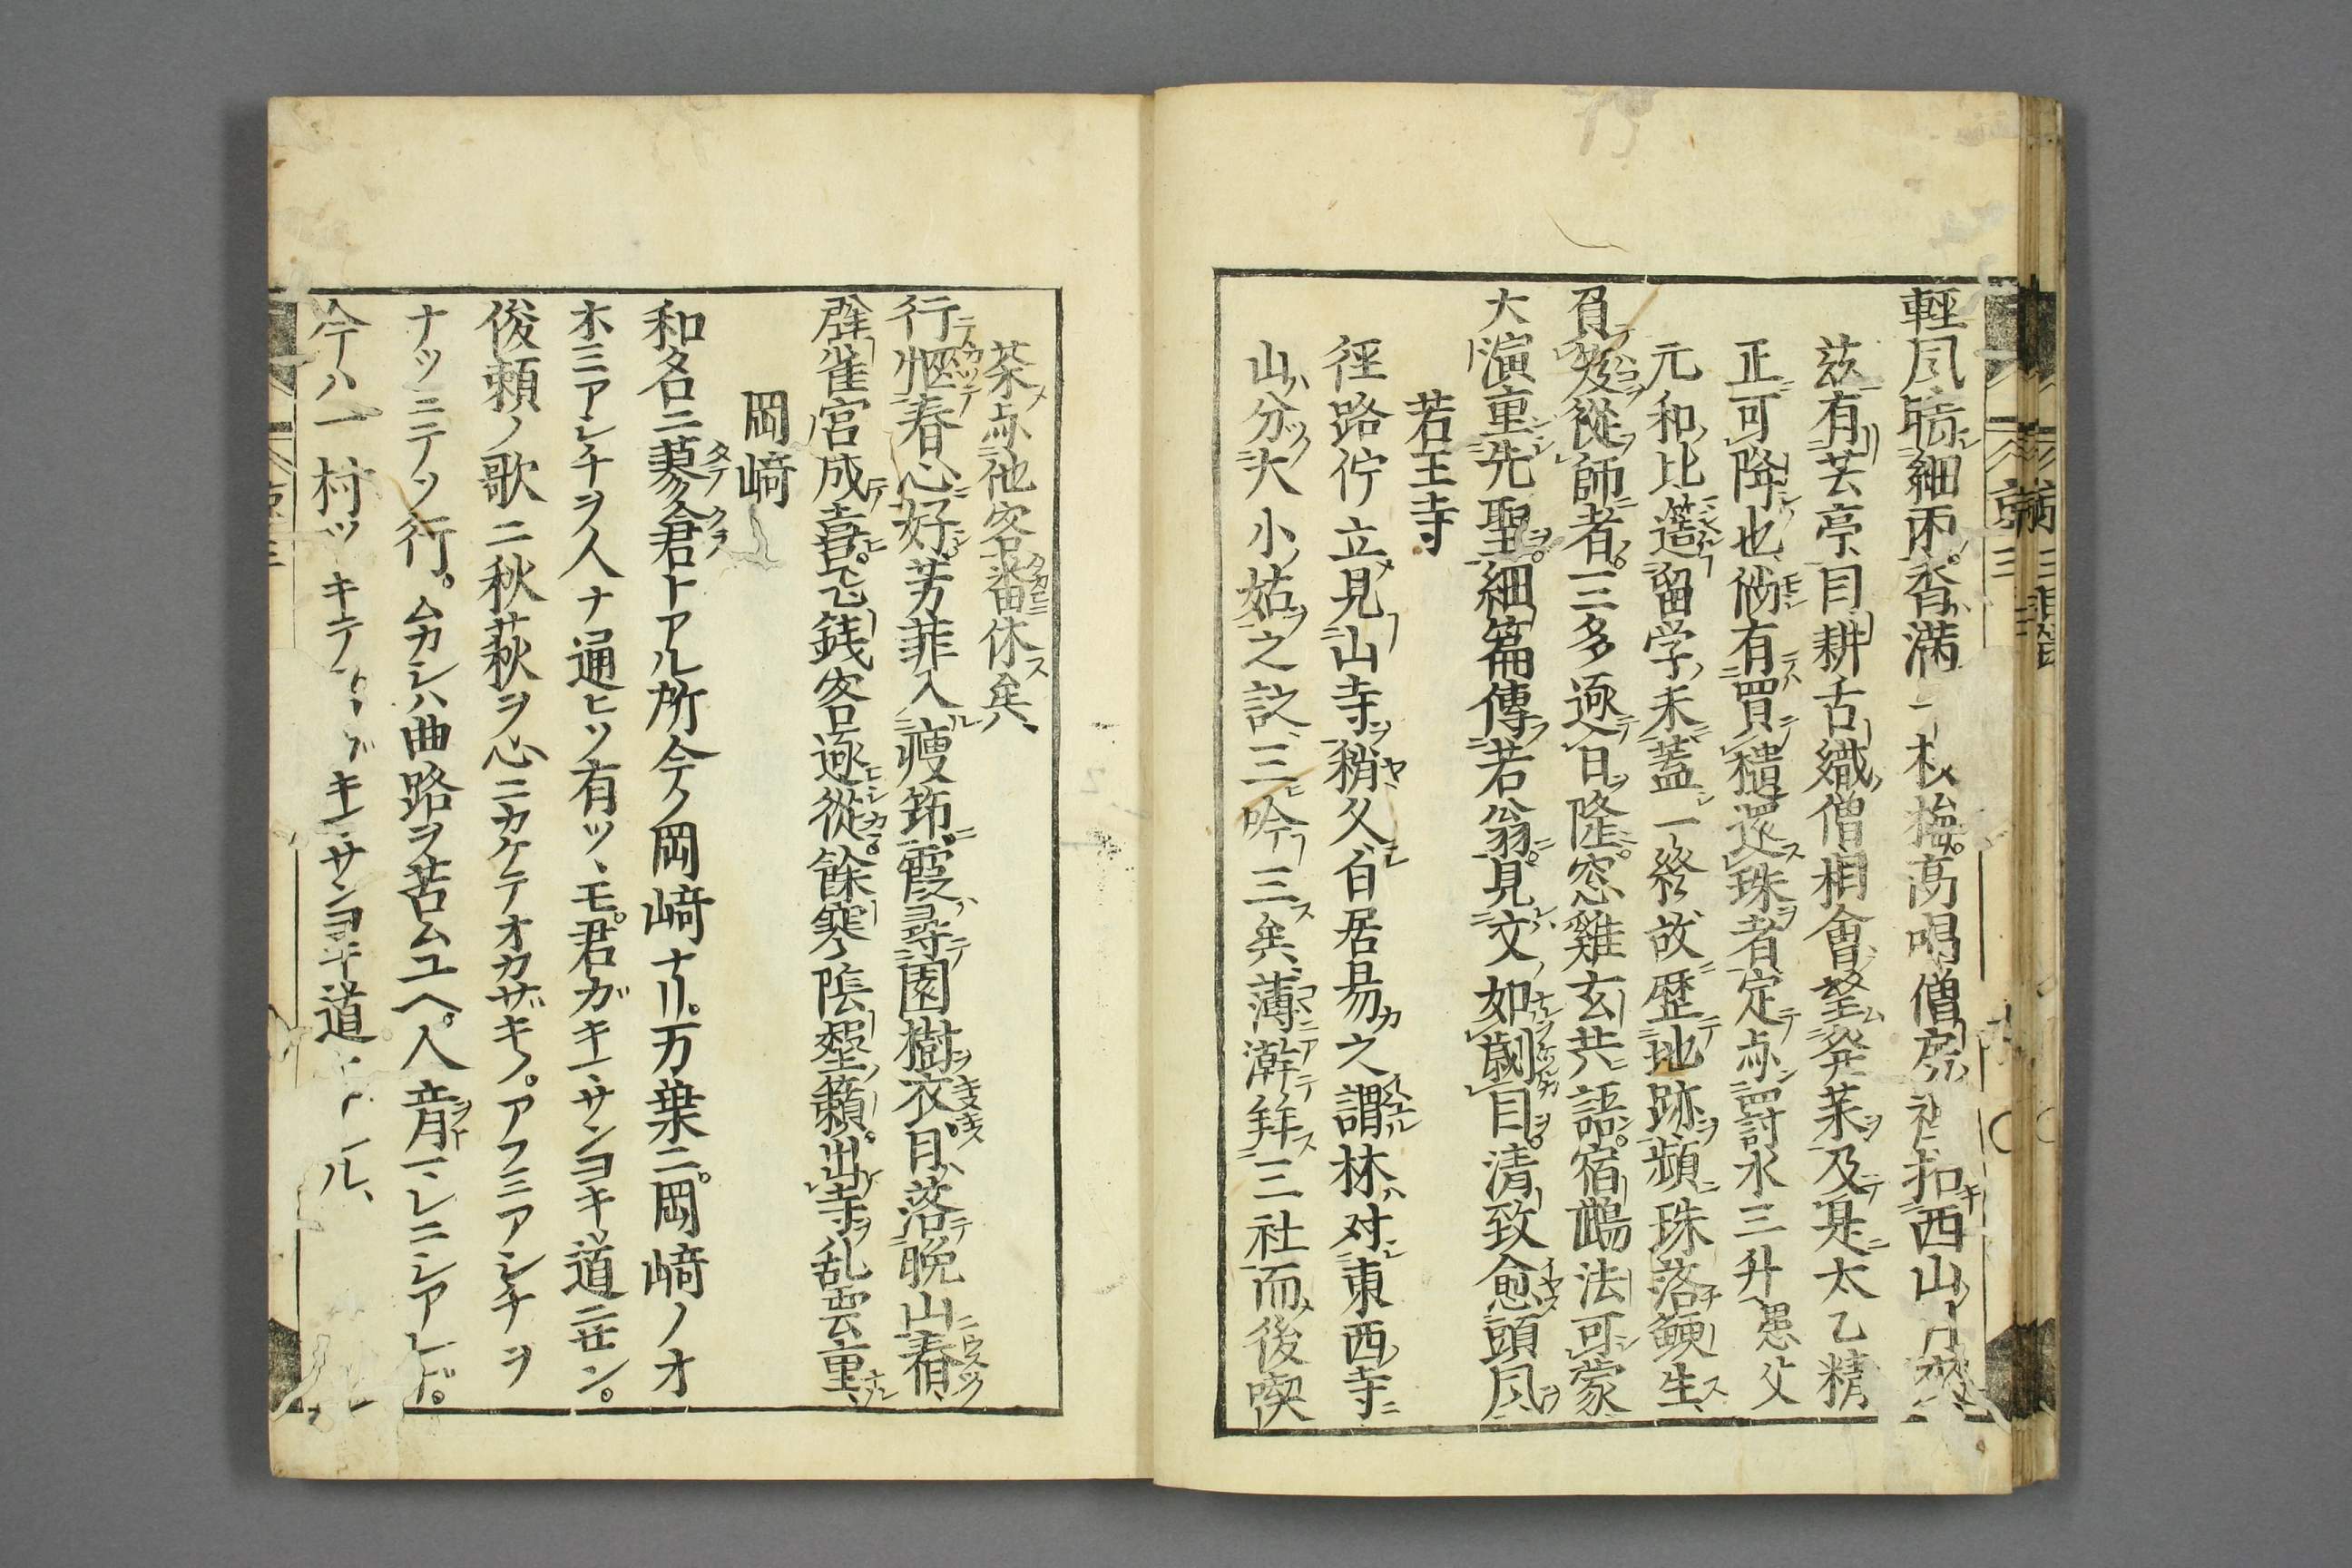 輕風暗細雨香満枝梅高唱僧房扣西山月
茲有芸亭目耕舌織僧相會望発茱及是太乙精
正可降也倘有買櫝還珠者定点罸水三升愚父
元和比簉留学耒蓋一終故歴地跡頻珠落鯁生
負笈従師者三多逐日隆窓雞玄共語宿鷓法可蒙
大演重先聖細篇傳若翁見文如劌目清致愈頭風
若王寺
徑路佇立見山寺稍久白居易之謂林对東西寺
山分大小姑之詃三吟三矣薄澣拜三社而後喫
茶点他客番休矣
行愜春心好芳菲入痩筇霞尋園樹衣日落晩山舂
群雀宮成喜飛銭客逐從餘寒陰壑籟出寺乱雲重
岡﨑
和名ニ蓼倉君トアル所今ノ岡﨑ナリ万葉ニ岡﨑ノオ
ホミアレチヲ人ナ通ヒソ有ツヽモ君ガキマサンヨキ道ニセン
俊頼ノ歌ニ秋萩ヲ心ニカケテオカザキノアフミアシチヲ
ナツミニテソ行ムカシハ曲路ヲ苦ムユヘ人音マレニシアレド
今ハ一村ツキテキマサンヨキ道ル